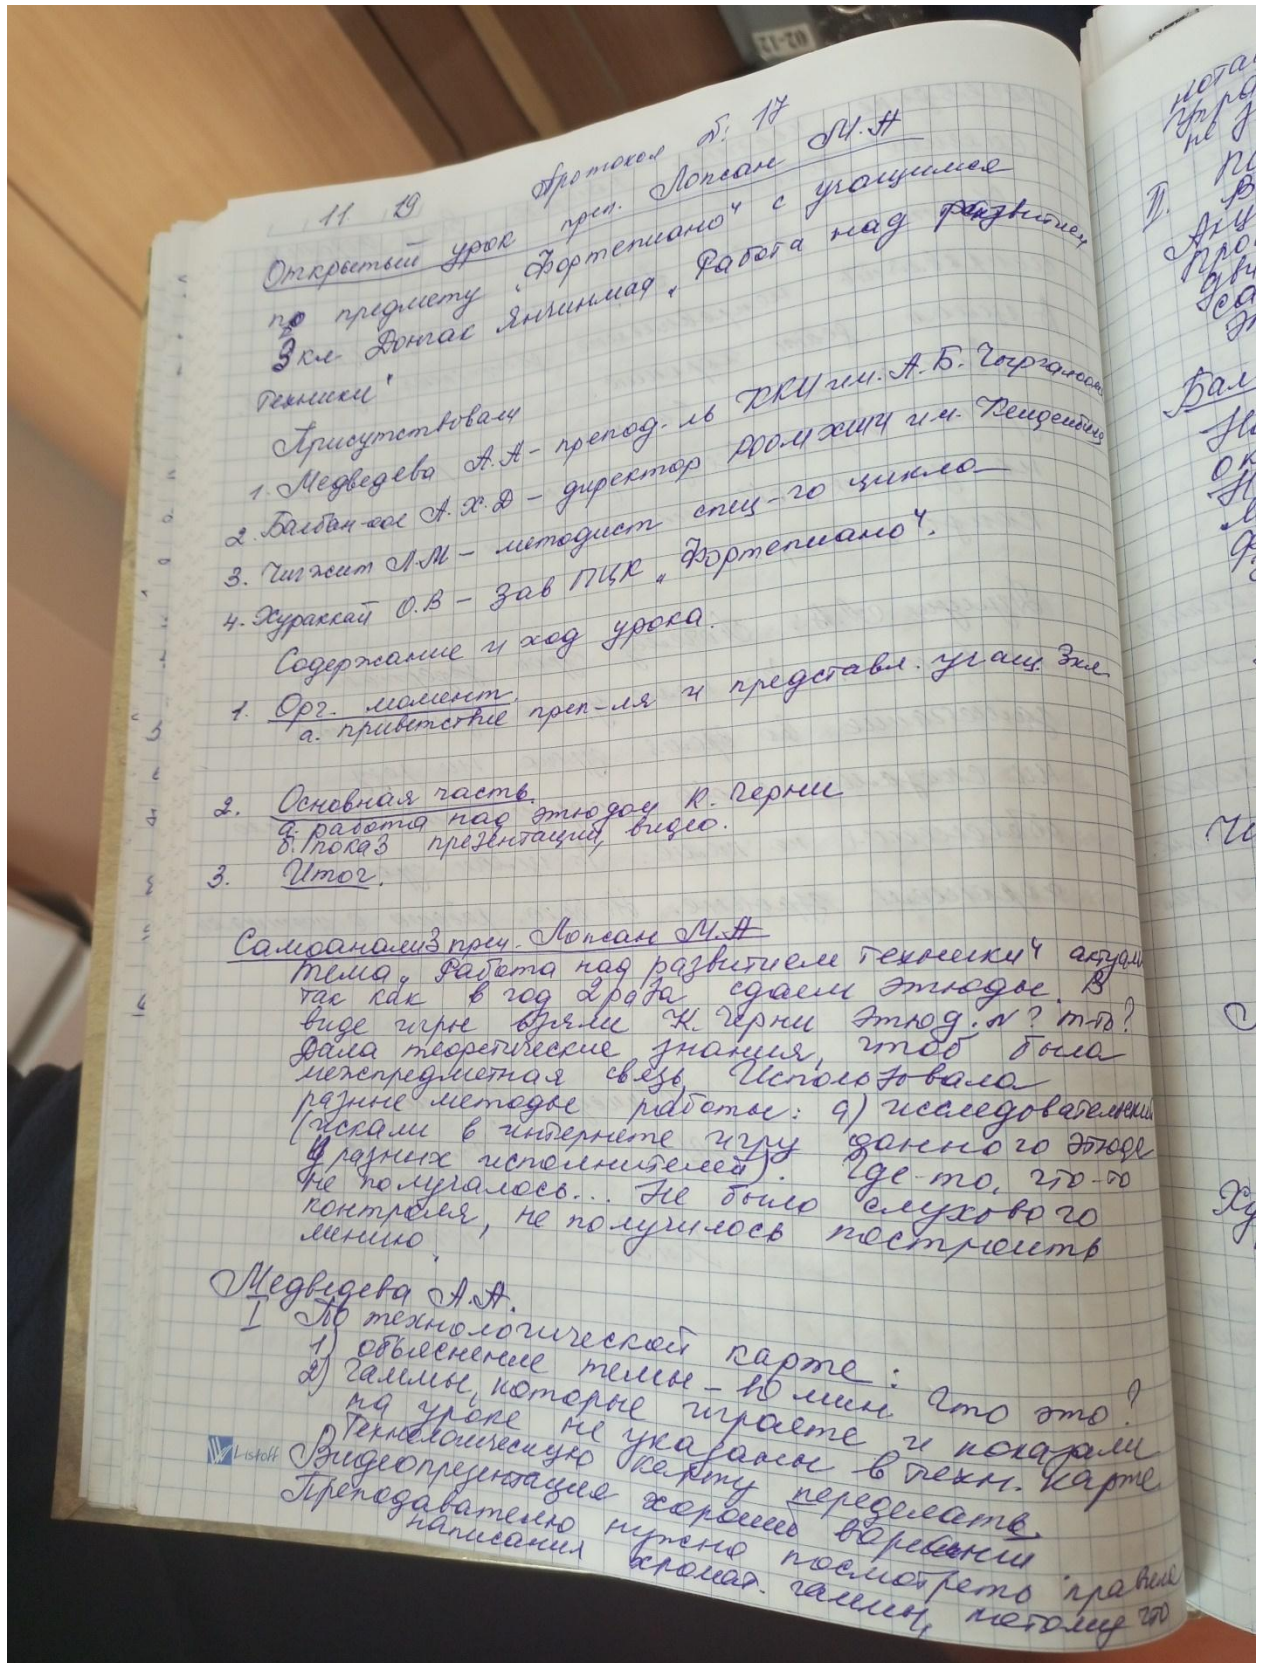 02-12
Протокол №. 17
11 19
Открытый урок преп. Лопсан М.А
по предмету „Фортепиано“ с учащимся
3 кл. Донгак Янчинмаа „Работа над развитием
техники“
Присутствовали
1. Медведева А.А - препод-ль ККИ им. А.Б. Чыргал-оола
2. Балбан-оол А.Х.Д - директор РООМХШИ им.
3. Чигжит Л.М - методист спец-го цикла
4. Хураккай О.В - Зав ПЦК „Фортепиано“.
Содержание и ход урока.
1. Орг. момент.
а. приветствие преп-ля и представл. учащ. 3кл
2. Основная часть.
а. работа над этюдом К. Черни
б. показ презентации, видео.
3. Итог.
Самоанализ преп. Лопсан М.А
Тема „Работа над развитием техники“ актуал
так как в год 2 раза сдаем этюды. В
виде игры взяли К. Черни этюд. N? т-ть?
Дала теоретические знания, чтоб была
межпредметная связь. Использовала
разные методы работы: а) исследовательский
(искали в интернете игру данного этюда
у разных исполнителей). Где-то, что-то
не получалось... Не было слухового
контроля, не получилось построить
линию.
Медведева А.А.
I По технологической карте:
1) объяснение темы - 10 мин. Что это?
2) Гаммы, которые играете и показали
на уроке не указаны в техн. карте.
Технологическую карту переделать
Видеопрезентация хороший вариант
Преподавателю нужно посмотреть правила
написания хромат. гаммы, потому что
Listoff
II.
Бал